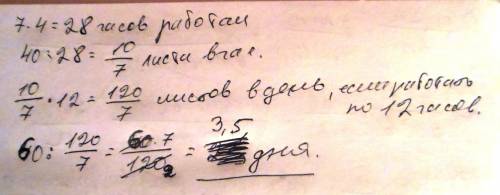 7·4=28 часов работал
40:28=10/7 листа в час.
10/7·12=120/7 листов в день, если работать
по 12 часов.
60:120/7=60·7/120₂=3,5 дня.